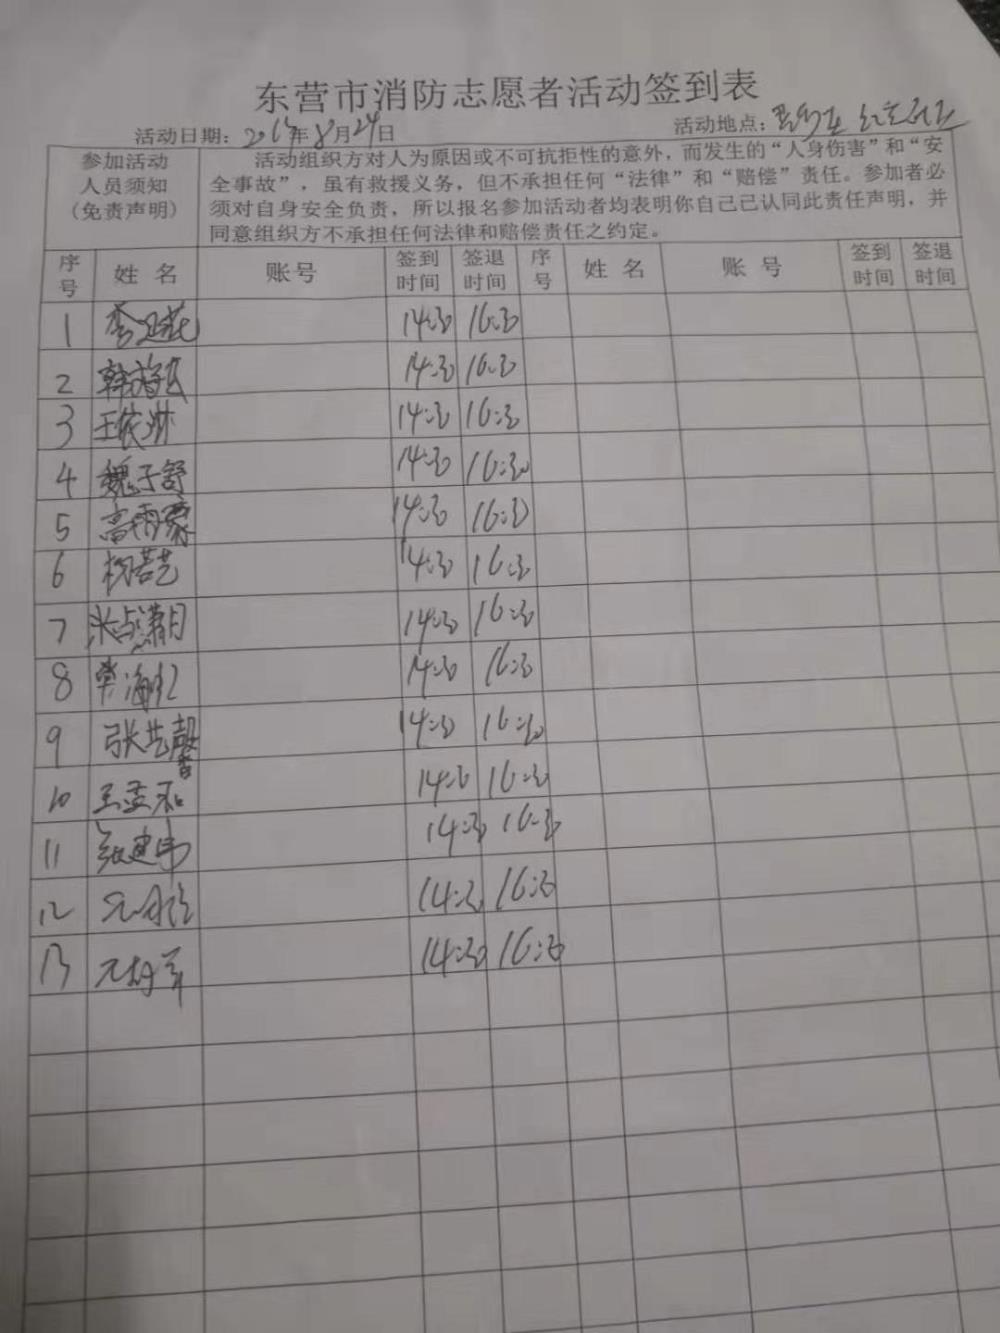 东营市消防志愿者活动签到表
活动日期：2019年8月24日 活动地点：
参加活动人员须知（免责声明）
活动组织方对人为原因或不可抗拒性的意外，而发生的“人身伤害”和“安
全事故”，虽有救援义务，但不承担任何“法律”和“赔偿”责任。参加者必
须对自身安全负责，所以报名参加活动者均表明你自己己认同此责任声明，并
同意组织方不承担任何法律和赔偿责任之约定。
序号 姓名 账号 签到时间 签退时间 序号 姓名 账号 签到时间 签退时间
1 14:30 16:30
2 韩 14:30 16:30
3 王依琳 14:30 16:30
4 魏子舒 14:30 16:30
5 高雨霖 14:30 16:30
6 杨若艺 14:30 16:30
7 潇月 14:30 16:30
8 海红 14:30 16:30
9 张艺馨 14:30 16:30
10 王孟和 14:30 16:30
11 张建伟 14:30 16:30
12 14:30 16:30
13 14:30 16:30